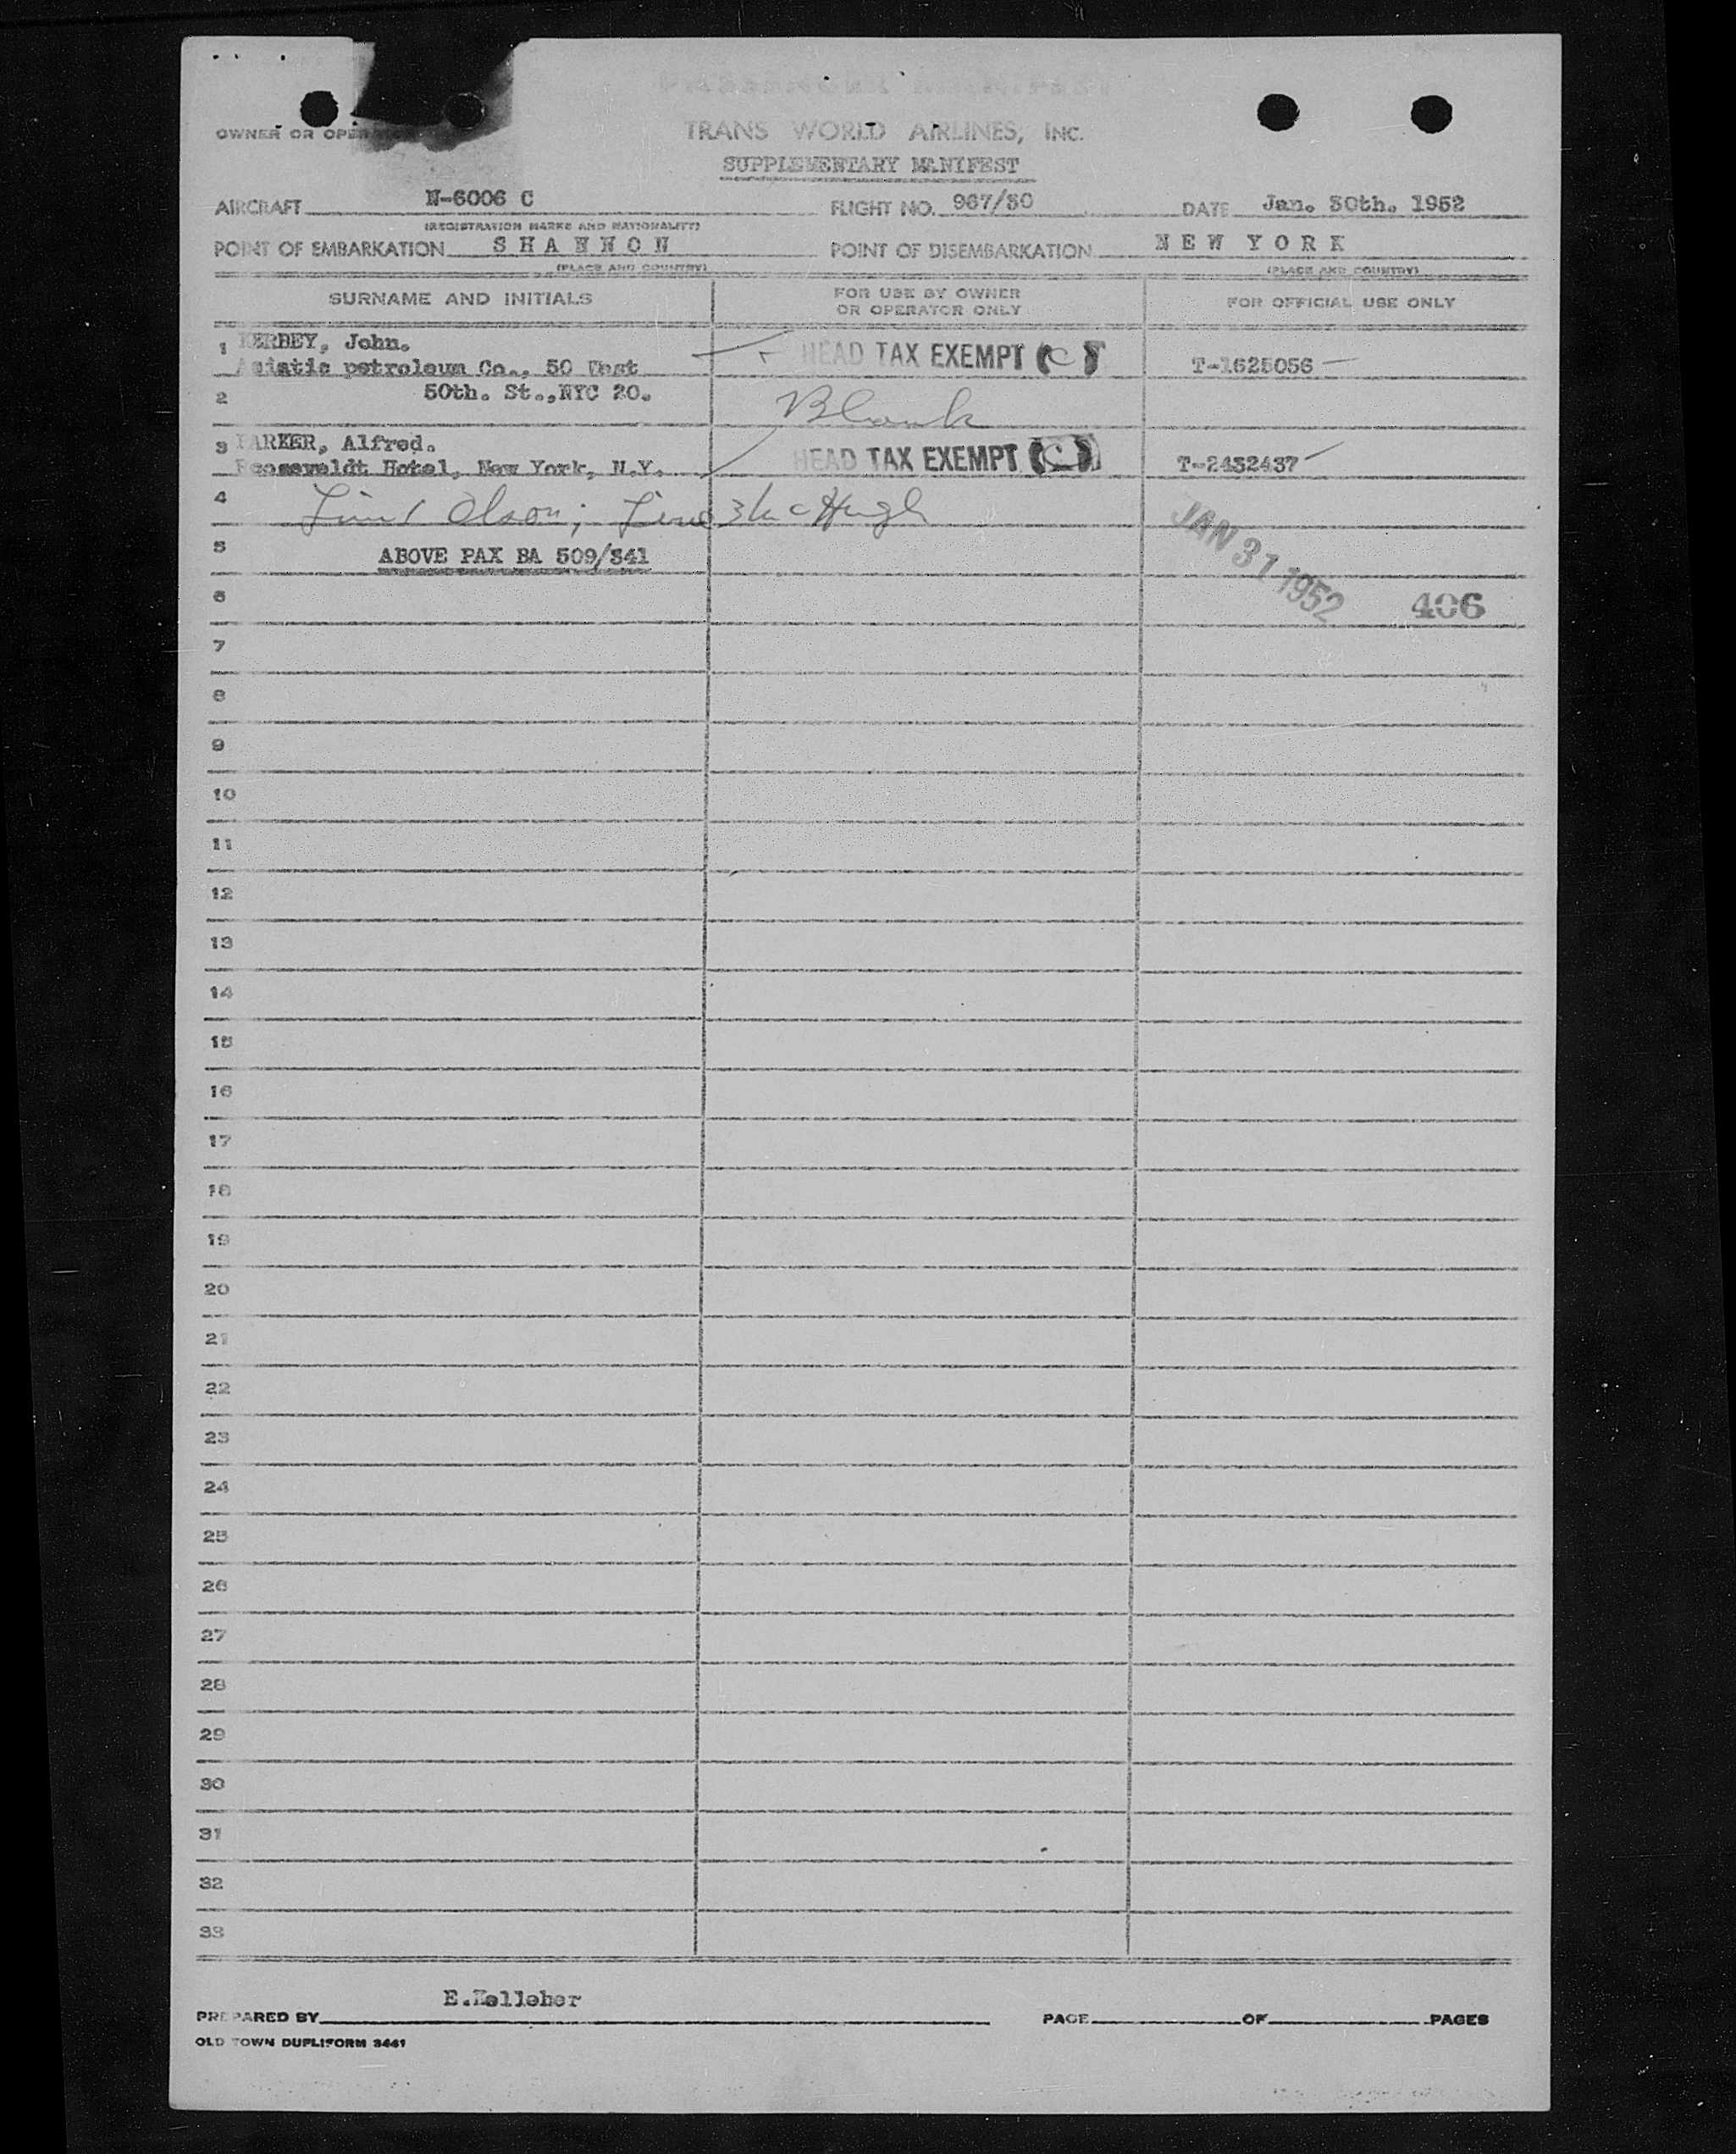 TRANS WORLD AIRLINES, INC.
OWNER OR
SUPPLEMENTARY MANIFEST
AIRCRAFT N-6006 C FLIGHT NO. 967/30 DATE Jan. 30th. 1952
(REGISTRATION MARKS AND NATIONALITY)
POINT OF EMBARKATION S H A N N O N POINT OF DISEMBARKATION N E W Y O R K
(PLACE AND COUNTRY) (PLACE AND COUNTRY)
SURNAME AND INITIALS FOR USE BY OWNER OR OPERATOR ONLY FOR OFFICIAL USE ONLY
1 John. HEAD TAX EXEMPT
Asiatic petroleum Co., 50 West T-1625056
2 50th. St.,NYC 20. Blank
3 Alfred. HEAD TAX EXEMPT
Rooseveldt Hotel, New York, N.Y. T-2452437
4 Line 1 Olson; Line 3 McHugh
JAN 31 1952
5 ABOVE PAX BA 509/341
6 406
7
8
9
10
11
12
13
14
15
16
17
18
19
20
21
22
23
24
25
26
27
28
29
30
31
32
33
E.Kelleher
PREPARED BY PAGE OF PAGES
OLD TOWN DUPLIFORM 3441